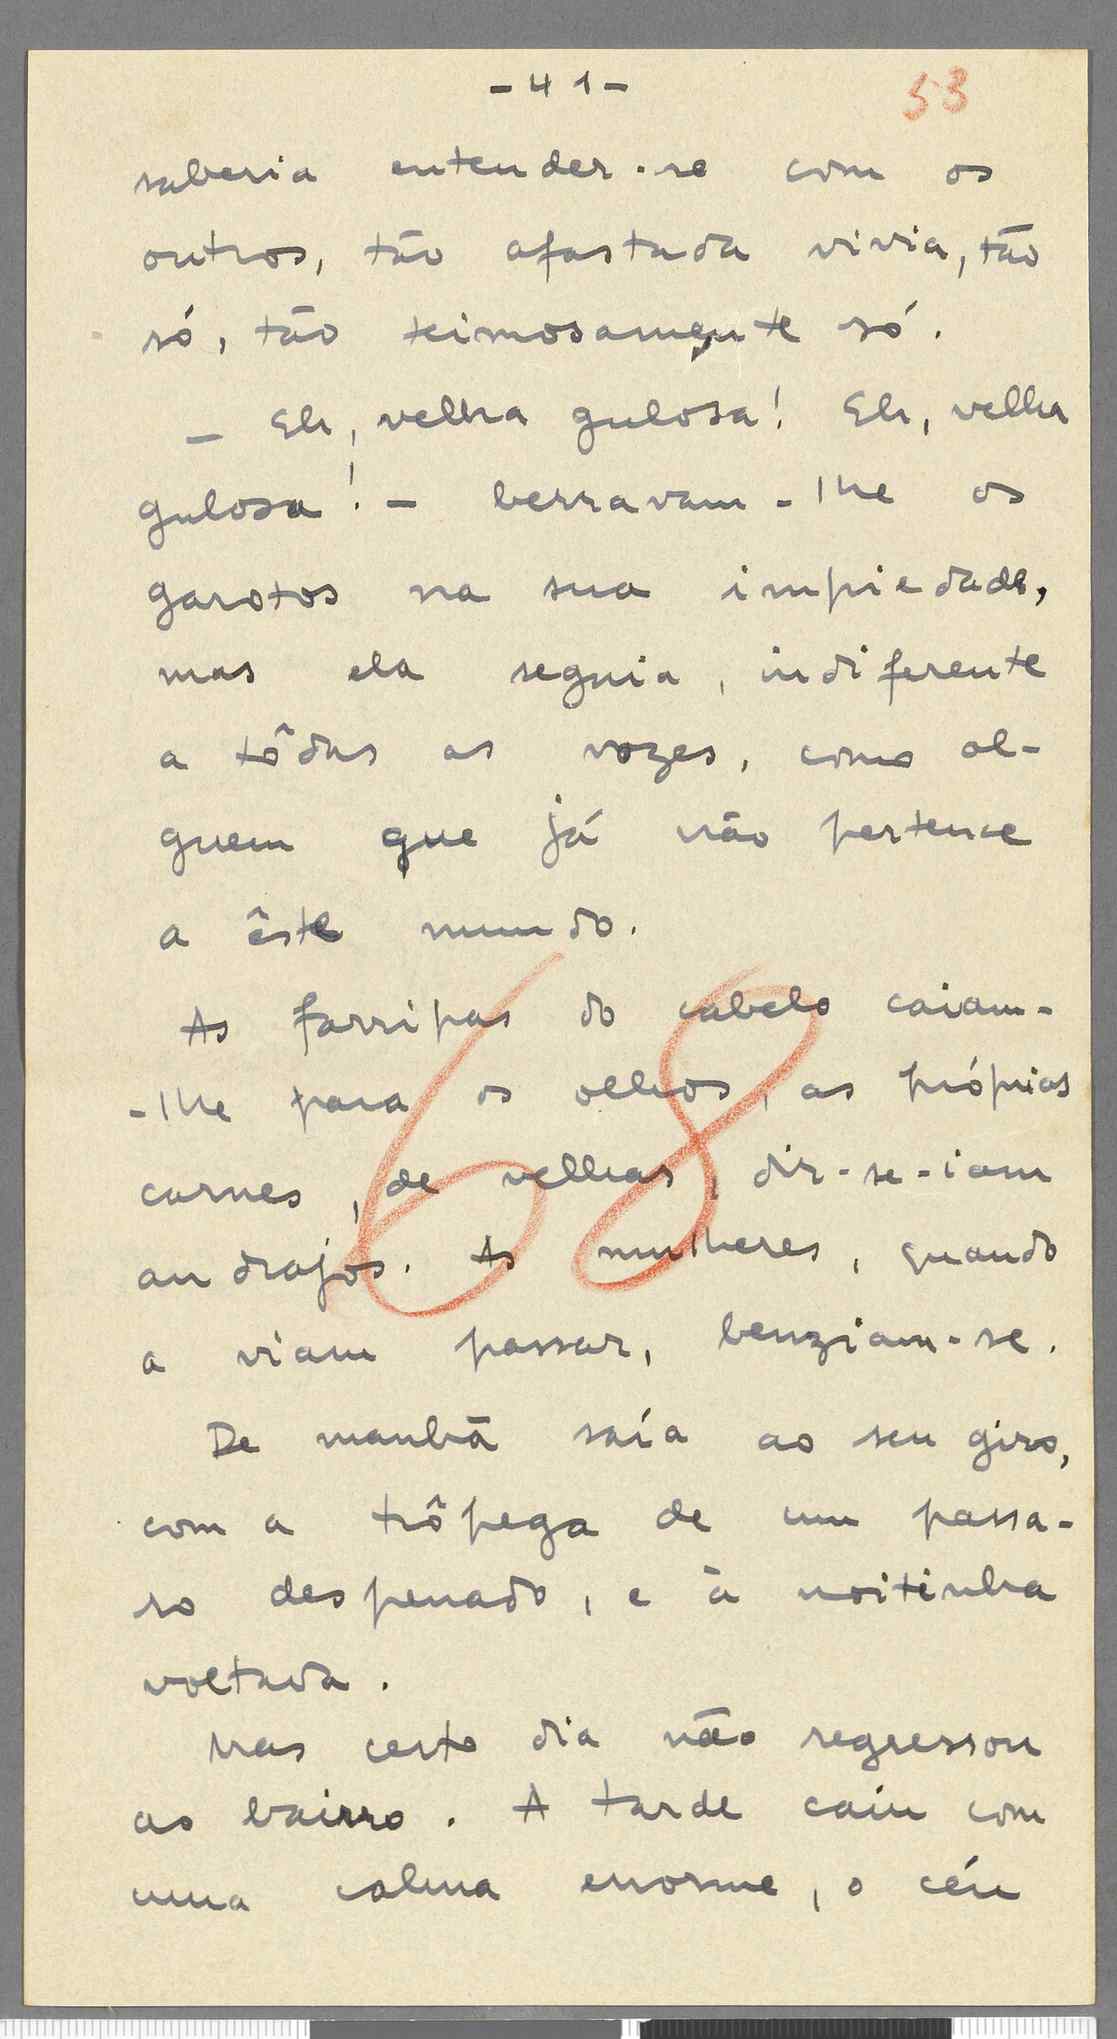 - 41 -
53
saberia entender-se com os
outros, tão afastada vivia, tão
só, tão teimosamente só.
- Eh, velha gulosa! Eh, velha
gulosa! - berravam-lhe os
garotos na sua impiedade,
mas ela seguia, indiferente
a tôdas as vozes, como al-
guem que já não pertence
a êste mundo.
As farripas do cabelo caiam-
-lhe para os olhos, as próprias
carnes, de velhas, dir-se-iam
andrajos. As mulheres, quando
a viam passar, benziam-se.
68
De manhã saía ao seu giro,
com a trôpega de um passa-
ro despenado, e à noitinha
voltava.
Mas certo dia não regressou
ao bairro. A tarde caiu com
uma calma enorme, o céu